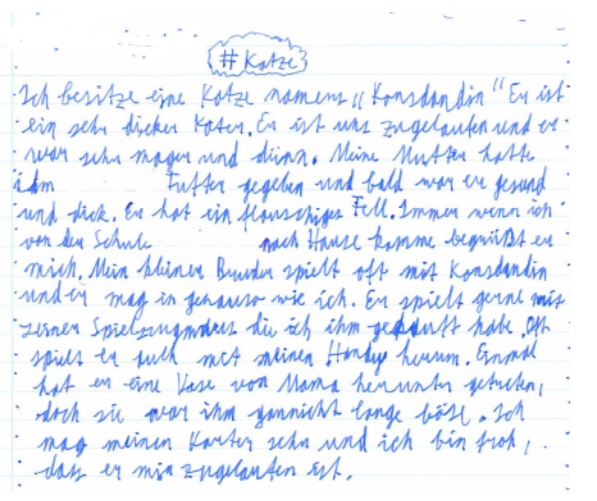 # Katze
Ich besitze eine Katze namens „Konsdandin“ Er ist
ein sehr dicker Kater. Er ist uns zugelaufen und er
war sehr mager und dünn. Meine Mutter hatte
ihm Futter gegeben und bald war er gesund
und dick. Er hat ein flauschiges Fell. Immer wenn ich
von der Schule nach Hause komme begrüßt er
mich. Mein kleiner Bruder spielt oft mit Konsdandin
und er mag in genauso wie ich. Er spielt gerne mit
seinen die ich ihm gekauft habe. Oft
spielt er auch mit meinen Handy herum. Einmal
hat er eine Vase von Mama herunter getreten,
doch sie war ihm garnicht lange böse. Ich
mag meinen Karter sehr und ich bin froh,
dass er mir zugelaufen ist.